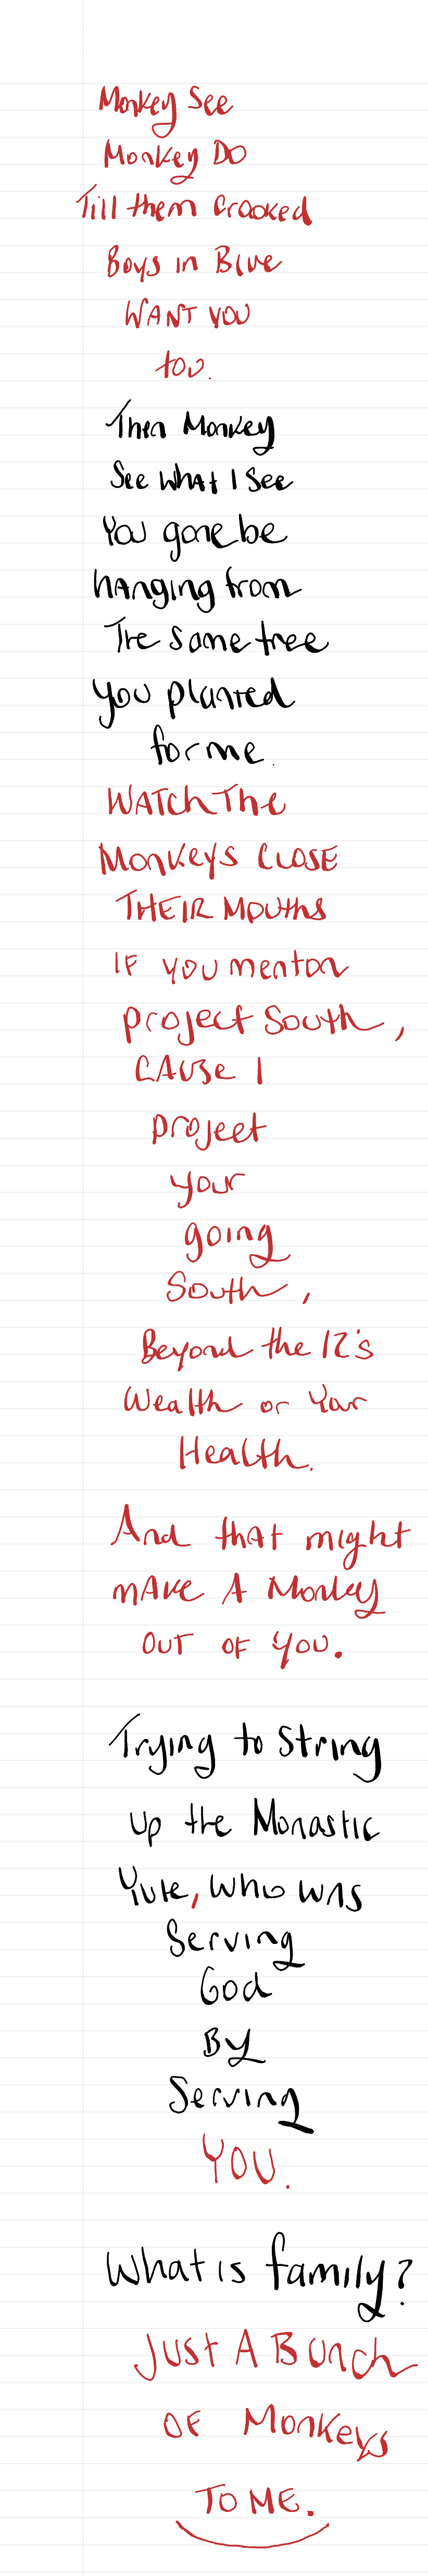 Monkey See
Monkey DO
Till them Crooked
Boys in Blue
WANT YOU
too.
Then Monkey
See what I see
You gone be
hanging from
The same tree
you planted
for me.
WATCH The
MonKeys CLOSE
THEIR MOUTHS
IF you menton
project South,
CAUSE I
project
your
going
South,
Beyond the 12's
Wealth or Your
Health.
And that might
mAke A Monkey
OUT OF YOU.
Trying to String
up the Monastic
Yute, who wAs
Serving
God
By
Serving
YOU.
What is family?
JUST A Bunch
OF Monkeys
TO ME.